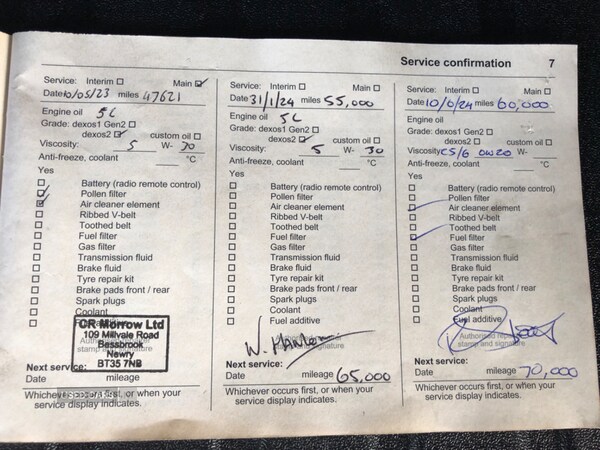 Service confirmation 7
Service: Interim ☐ Main ☑
Date 10/05/23 miles 47621
Engine oil 5L
Grade: dexos1 Gen2 ☐
dexos2 ☑ custom oil ☐
Viscosity: 5 W- 30
Anti-freeze, coolant °C
Yes
☐ Battery (radio remote control)
☑ Pollen filter
☑ Air cleaner element
☐ Ribbed V-belt
☐ Toothed belt
☐ Fuel filter
☐ Gas filter
☐ Transmission fluid
☐ Brake fluid
☐ Tyre repair kit
☐ Brake pads front / rear
☐ Spark plugs
☐ Coolant
CR Morrow Ltd
109 Millvale Road
Bessbrook
Newry
BT35 7NB
Next service:
Date mileage
Whichever occurs first, or when your
service display indicates.
Service: Interim ☐ Main ☐
Date 31/1/24 miles 55,000
Engine oil 5L
Grade: dexos1 Gen2 ☐
dexos2 ☑ custom oil ☐
Viscosity: 5 W- 30
Anti-freeze, coolant °C
Yes
☐ Battery (radio remote control)
☐ Pollen filter
☐ Air cleaner element
☐ Ribbed V-belt
☐ Toothed belt
☐ Fuel filter
☐ Gas filter
☐ Transmission fluid
☐ Brake fluid
☐ Tyre repair kit
☐ Brake pads front / rear
☐ Spark plugs
☐ Coolant
☐ Fuel additive
W.
Next service:
Date mileage 65,000
Whichever occurs first, or when your
service display indicates.
Service: Interim ☐ Main ☐
Date miles 60,000
Engine oil
Grade: dexos1 Gen2 ☐
dexos2 ☐ custom oil ☐
Viscosity 0W20
Anti-freeze, coolant °C
Yes
☐ Battery (radio remote control)
☐ Pollen filter
☑ Air cleaner element
☐ Ribbed V-belt
☐ Toothed belt
☑ Fuel filter
☐ Gas filter
☐ Transmission fluid
☐ Brake fluid
☐ Tyre repair kit
☐ Brake pads front / rear
☐ Spark plugs
☐ Coolant
☐ Fuel additive
Authorised
stamp and signature
Next service:
Date mileage 70,000
Whichever occurs first, or when your
service display indicates.